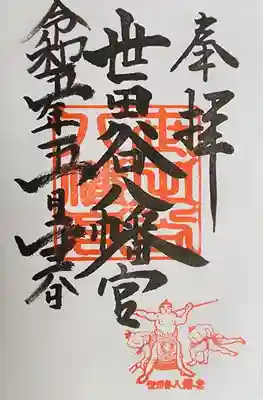 奉拝
世田谷八幡宮
令和五年
世田谷八幡宮
世田谷八幡宮